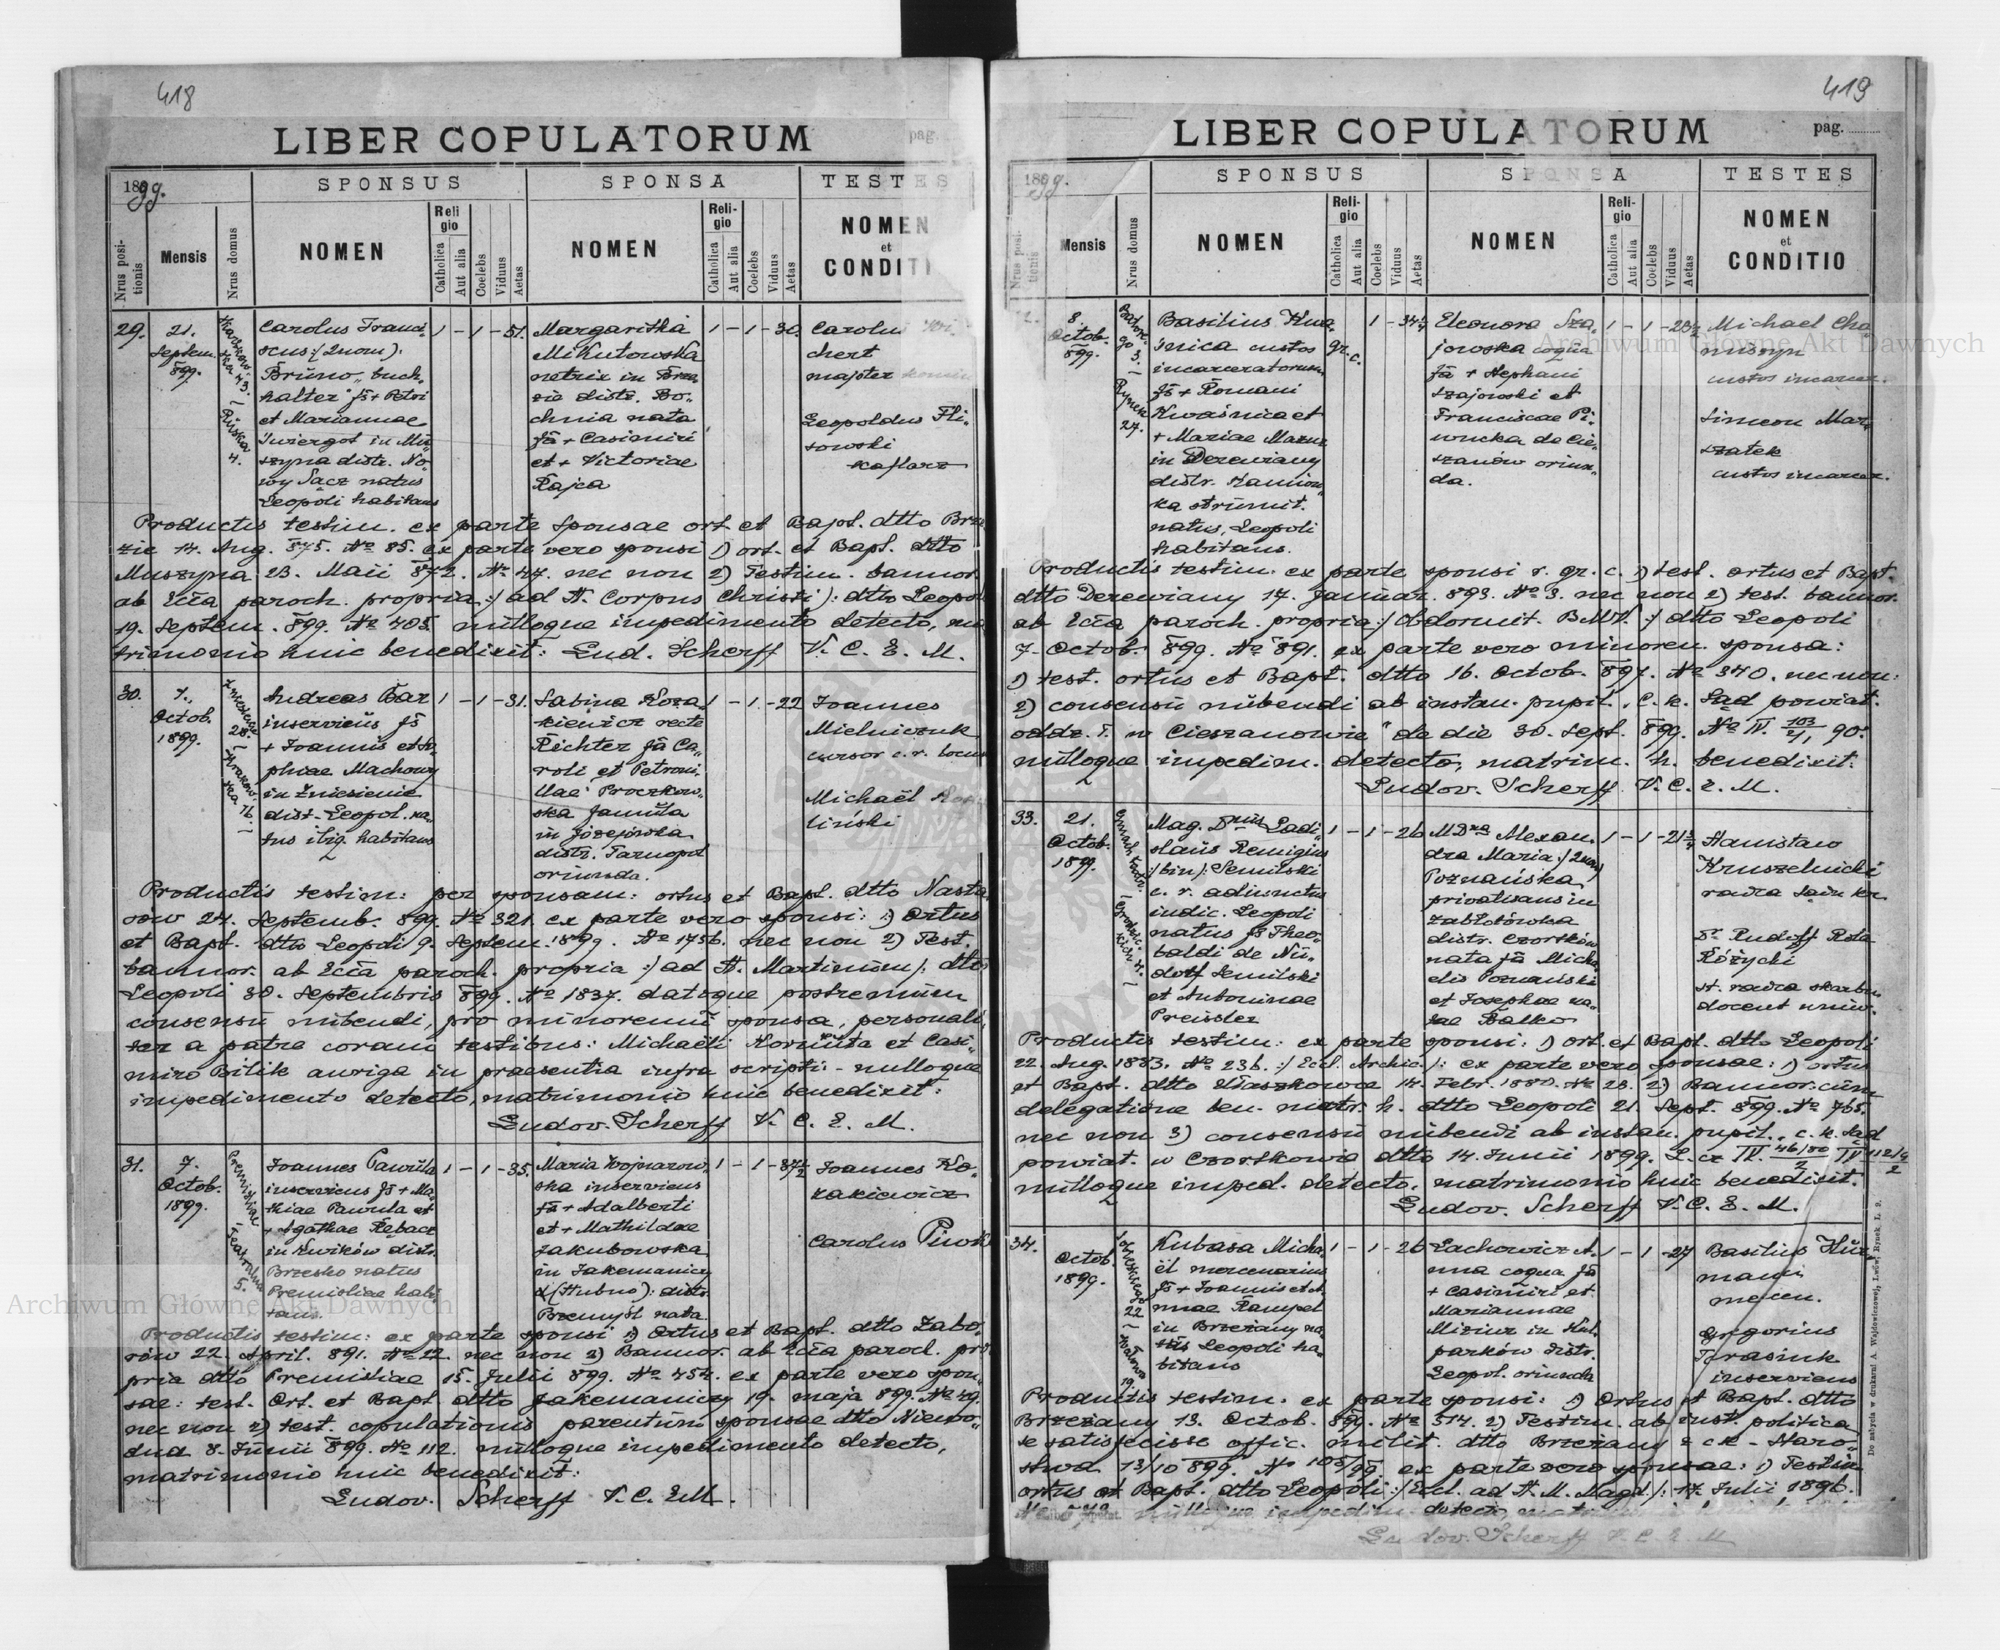 418
LIBER COPULATORUM
pag.
1899.
SPONSUS
SPONSA
TESTES
Nrus positionis
Mensis
Nrus domus
NOMEN
Religio
Catholica
Aut alia
Coelebs
Viduus
Aetas
NOMEN
Religio
Catholica
Aut alia
Coelebs
Viduus
Aetas
NOMEN
et
CONDITI
29.
21.
Septem.
899.
Ruska
4.
Carolus Franci-
scus :/2nom):
Brüno, buch-
halter fs + Petri
et Mariannae
Swiergot in Mu-
szyna distr. No-
wy Sącz natus
Leopoli habitans
1 - 1 - 51.
Margaritha
Mikutowska
netrix in Brze-
zie distr. Bo-
chnia nata
fa + Casimiri
et + Victoriae
Rajca
1 - 1 - 30.
Carolus
chert
majster
Leopoldus Fli-
sowski
kaflarz
Productis testim. ex parte sponsae ort. et Bapt. dtto Brze
zie 14. Aug. 875. No 85. ex parte vero sponsi 1) ort. et Bapt. dtto
Muszyna 23. Maii 872. No 47. nec non 2) Testim. bannor.
ab Ecia paroch. propria :/ ad St. Corpus Christi): dtto Leopol
19. Septem. 899. No 405. nulloque impedimento detecto, ma
trimonio huic benedixit: Lud. Scherff V. C. E. M.
30.
1.
Octob.
1899.
28.
Andreas Bar
inserviens fs
+ Joannis et So-
phiae Machowy
in Zniesienie
dist. Leopol. na-
tus ibiq. habitans
1 - 1 - 31.
Sabina Koza-
kiewicz recte
Richter fa Ca-
roli et Petroni-
llae Proczkow-
ska famula
in Józejówka
distr. Tarnopol
oriunda.
1 - 1 - 22
Joannes
Mielniczuk
cursor c. r.
Michaël
liński
Productis testim: per sponsam: ortus et Bapt. dtto Nasta
sow 24. Septemb. 899. No 321. ex parte vero sponsi: 1) Ortus
et Bapt. dtto Leopoli 9. Septem. 1899. No 1756. nec non 2) Test.
bannor. ab Ecia paroch. propria :/ ad St. Martinum/: dtto
Leopoli 30. Septembris 899. No 1837. datoque postremum
consensu nubendi, pro minorenni sponsa, personali-
ter a patre coram testibus: Michaeli Korniita et Casi-
miro Bilik auriga in praesentia infra scripti - nulloque
impedimento detecto, matrimonio huic benedixit:
Ludov. Scherff V. C. E. M.
31.
7.
Octob.
1899.
Premisliae
5.
Joannes Pawuła
inserviens fs + Ma-
thiae Pawuła et
+ Agathae Rębacz
in Kwików distr.
Brzesko natus
Premisliae habi-
tans.
1 - 1 - 35.
Maria Wojnarow-
ska inserviens
fa + Adalberti
et + Mathildae
Jakubowska
in Jaksmanicy
distr.
Przemyśl nata.
1 - 1 - 37½
Joannes Ko-
zakiewicz
Carolus
Productis testim: ex parte sponsi 1) Ortus et Bapt. dtto Zabo-
rów 22. April. 891. No 22. nec non 2) Bannor. ab Ecia paroch. pro
pria dtto Premisliae 15. Julii 899. No 454. ex parte vero spon-
sae: test. Ort. et Bapt. dtto Jaksmaniczy 19. maja 899. No 49.
nec non 2) test. copulationis parentum sponsae dtto
8. Junii 899. No 112. nulloque impedimento detecto,
matrimonio huic benedixit:
Ludov. Scherff V. C. E. M.
419
LIBER COPULATORUM
pag.
1899.
SPONSUS
SPONSA
TESTES
Nrus positionis
Mensis
Nrus domus
NOMEN
Religio
Catholica
Aut alia
Coelebs
Viduus
Aetas
NOMEN
Religio
Catholica
Aut alia
Coelebs
Viduus
Aetas
NOMEN
et
CONDITIO
8.
Octob.
899.
3.
Rynek
27.
Basilius Kwa-
śnica custos
incarceratorum
fs + Romani
Kwaśnica et
+ Mariae Mazur
in Derewiany
distr. Kamion-
ka strumił.
natus, Leopoli
habitans.
gr.
c.
1 - 34
Eleonora Sza-
jowska coqua
fa + Stephani
Szajowski et
Franciscae Pi-
wucka de Cie-
szanów oriun-
da.
1 - 1 - 23½
Michael Cha-
muszyn
custos incarcer.
Simeon Mar-
szałek
custos incarcer.
Productis testim. ex parte sponsi r. gr. c. 1) test. ortus et Bapt.
dtto Derewiany 17. Januar. 893. No 3. nec non 2) test. bannor.
ab Ecia paroch. propria :/ Obdormit. BMV. :/ dtto Leopoli
7. Octob. 899. No 891. ex parte vero minoren. sponsa:
1) test. ortus et Bapt. dtto 16. Octob. 897. No 340. nec non:
2) consensu nubendi ab instan. pupil. „C. k. Sąd powiat.
oddz. I. w Cieszanowie" de die 30. Sept. 899. No IV. 103/21, 90.
nulloque impedim. detecto, matrim. h. benedixit:
Ludov. Scherff V. C. E. M.
33.
21.
Octob.
1899.
Mag. Dnus Ladi-
slaus Remigius
:/bin): Semilski
c. r. adiunctus
iudic. Leopoli
natus fs Theo-
baldi de Nü-
dorf Semilski
et Antoninae
Preissler
1 - 1 - 26
M. Dna Alexan-
dra Maria :/2nom)
Poznańska
privatisans in
Zabłotówka
distr. Czortków
nata fa Micha-
elis Poznański
et Josephae na-
tae Balko
1 - 1 - 21
Stanisław
Kruszelnicki
radca sądu kr.
Dr. Rudolf Rola
Różycki
st. radca skarbu
docent uniw.
Productis testim: ex parte sponsi: 1) ort. et Bapt. dtto Leopoli
22. Aug. 1883. No 236. :/ Eccl. Archic.): ex parte vero sponsae: 1) ortus
et Bapt. dtto Ułaszkowce 14. Febr. 1880. No 28. 2) Bannor. cum
delegatione ben. matr. h. dtto Leopoli 21. Sept. 899. No 765.
nec non 3) consensu nubendi ab instan. pupil. „c. k. Sąd
powiat. w Czortkowie dtto 14. Junii 1899. L. cz. IV. 46/80/2
nulloque imped. detecto, matrimonio huic benedixit.
Ludov. Scherff V. C. E. M.
34.
Octob.
1899.
22
19.
Kubasa Micha-
ël mercenarius
fs + Joannis et A-
nnae Rampel
in Brzeżany na-
tus Leopoli ha-
bitans
1 - 1 - 26
Lachowicz A-
nna coqua fa
+ Casimiri et
Mariannae
Miziur in Kul-
parków distr.
Leopol. oriunda
1 - 1 - 27
Basilius
mercen.
Grgorius
Tarasiuk
inserviens
Productis testim. ex parte sponsi: 1) Ortus et Bapt. dtto
Brzeżany 13. Octob. 899. No 514. 2) Testim. ab inst. politica
se satisfecisse offic. milit. dtto Brzeżany z ck. Staro-
stwa 13/10 899. No 105/99 ex parte vero sponsae: 1) Testim.
ortus et Bapt. dtto Leopoli :/ Eccl. ad St. M. Magd./: 17. Julii 1896.
nulloque impedim. detecto,
Ludov. Scherff V. C. E. M
Do nabycia w drukarni A. Wajdowiczowej, Lwów, Rynek L. 9.
Archiwum Główne Akt Dawnych
Archiwum Główne Akt Dawnych